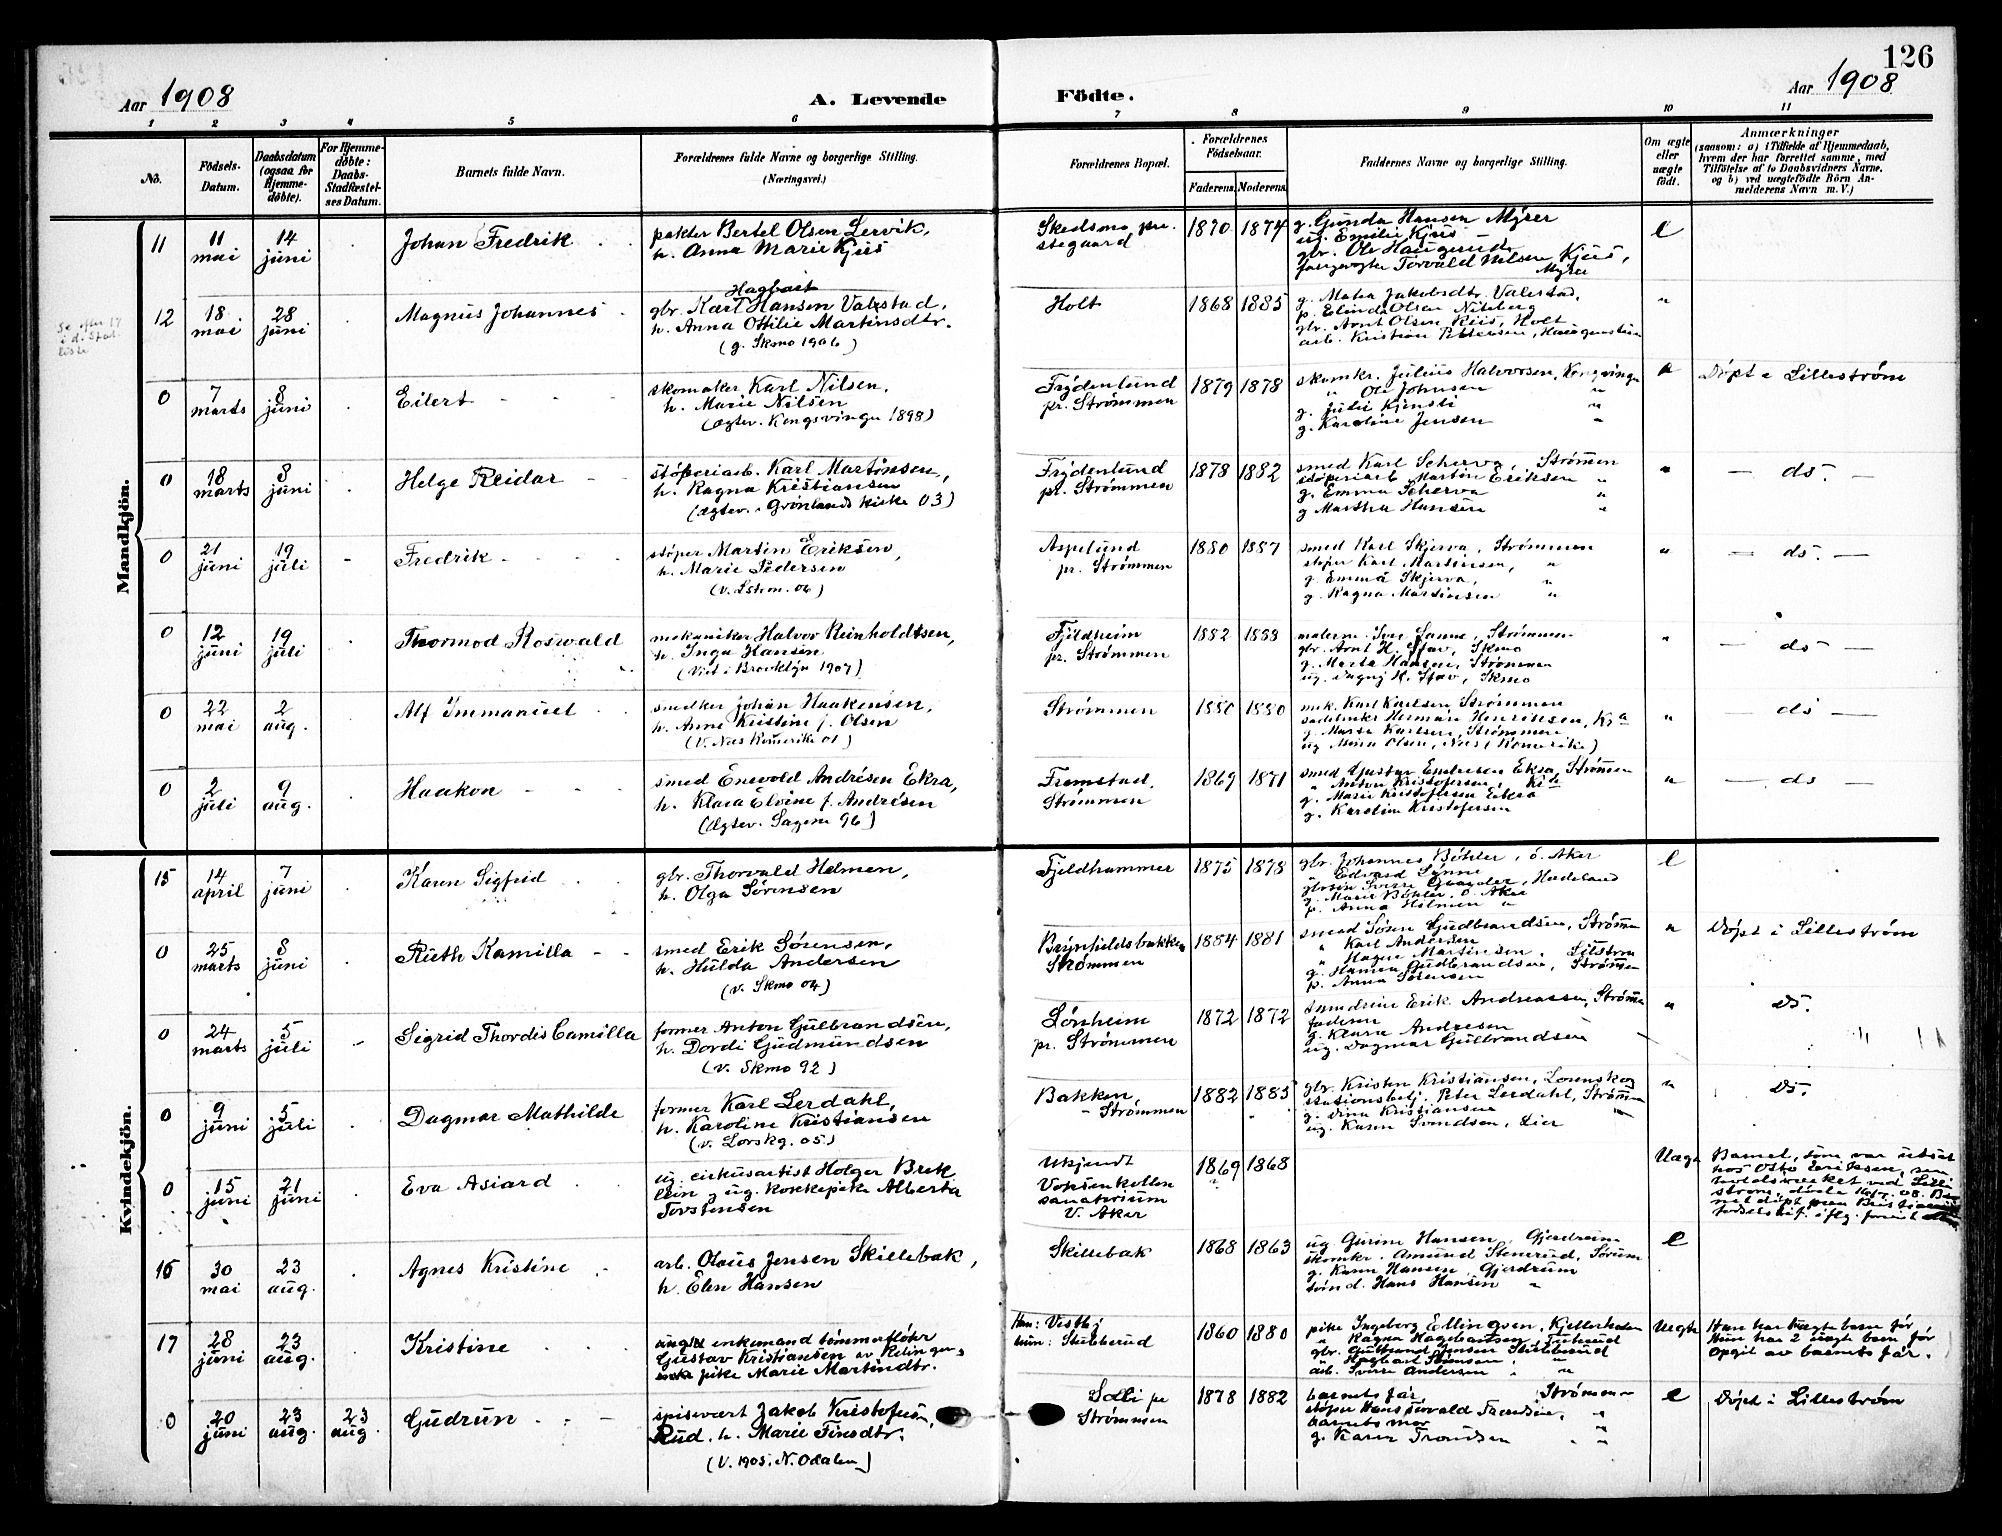 126
Aar 1908
A. Levende
Födte.
Aar 1908
1 2 3 4 5 6 7 8 9 10 11
No.
Födsels-Datum.
Daabsdatum (ogsaa for Hjemme-döbte).
For Hjemme-döbte: Daabs-Stadfæstel-ses Datum.
Barnets fulde Navn.
Forældrenes fulde Navne og borgerlige Stilling.
(Næringsvei.)
Forældrenes Bopæl.
Forældrenes Födselsaar.
Faderens. Moderens.
Faddernes Navne og borgerlige Stilling.
Om ægte eller uægte födt.
Anmærkninger
(saasom: a) i Tilfælde af Hjemmedaab,
hvem der har forrettet samme, med
Tilföielse af to Daabsvidners Navne,
og b) ved uægtefödte Börn An-
melderens Navn m. V.)
Mandkjön.
11 11 mai 14 juni Johan Fredrik
pakter Bertel Olsen Lervik,
h. Anna Marie Kjus
Skedsmo pre-
stegaard
1870 1874
g. Gunda Hansen Myrer
ug. Emilie Kjus
gbr. Ole Haugerud
forgjægter Torvald Nilsen Kjus,
Myrer
e
12 18 mai 28 juni Magnus Johannes
Hagbart
gbr. Karl Hansen Valstad,
h. Anna Ottilie Martinsdtr.
(g. Skmo 1906)
Holt
1868 1885
g. Maha Jakobsdtr. Valstad,
p. Elinda Olsen Nitberg
gbr. Arnt Olsen Riis, Holt
arb. Kristian Pettersen,
"
0 7 marts 8 juni Eilert
skomaker Karl Nilsen,
h. Marie Nilsen
(ægtev. Kongsvinger 1898)
Frydenlund
pr. Strømmen
1879 1878
skomkr. Julius Halvorsen, Kongsvinger
" Ole Johnsen "
g. Julie Kjensli "
g. Karoline Jensen "
"
Døpt i Lillestrøm
0 18 marts 8 juni Helge Reidar
støperiarb. Karl Martinsen,
h. Ragna Kristiansen
(ægtev. Grønlands kirke 03)
Frydenlund
pr. Strømmen
1878 1882
smed Karl Scherva, Strømmen
støperiarb Martin Eriksen "
g. Emma Scherva "
g Martha Hansen "
"
— ds. —
0 21 juni 19 juli Fredrik
støper Martin Eriksen,
h. Marie Pedersen
(v. Lstrøm. 06)
Aspelund
pr. Strømmen
1880 1887
smed Karl Skjerva, Strømmen
støper Karl Martinsen, "
g. Emma Skjerva, "
g. Ragna Martinsen "
"
— ds. —
0 12 juni 19 juli Thormod Roswald
mekaniker Halvor Reinholdtsen,
h. Inga Hansen
(Viet i Brooklyn 1907)
Fjeldheim
pr. Strømmen
1882 1888
malerm. Iver Sanne, Strømmen
gbr. Arnt H. Sfav, Skmo
g. Marta Hansen, Strømmen
ug. Dagny H. Sfav, Skmo
"
— ds —
0 22 mai 2 aug. Alf Immanuel
snedker Johan Haakensen,
h. Anne Kristine f. Olsen
(V. Næs Romerike 01)
Strømmen
1880 1880
mek. Karl Karlsen, Strømmen
Herman Henriksen, Kra
g. Marie Karlsen, Strømmen
ug Mina Olsen, Næs (Romerike)
"
— ds —
0 2 juli 9 aug. Haakon
smed Enevold Andrésen Ekra,
h. Klara Elvine f. Andrésen
(ægtev. Sagene 96)
Fremstad,
Strømmen
1869 1871
smed Gustav Endresen Ekra, Strømmen
" Anton Kristofersen
g. Marie Kristofersen Ekra
g. Karoline Kristofersen
"
— ds —
Kvindekjön.
15 14 april 7 juni Karen Sigfrid
gbr. Thorvald Helmen,
h. Olga Sørensen
Fjeldhammer
1875 1878
gbr. Johannes Bøhler, ö. Aker
" Edvard Sanne
Hadeland
g. Marie Bøhler, ö. Aker
p. Anna Holmen "
e
0 25 marts 8 juni Ruth Kamilla
smed Erik Sørensen,
h. Hulda Andersen
(v. Skmo 04)
Brynhildsbakken
Strømmen
1884 1881
smed Søren Gudbrandsen, Strømmen
" Karl Andersen
" Hagen Martinsen, Lillstrøm
g. Hanna Gudbrandsen, Strømmen
p. Anna Sørensen
"
Døpt i Lillestrøm
0 24 marts 5 juli Sigrid Thordis Camilla
former Anton Gulbrandsen,
h. Dordi Gudmundsen
(v. Skmo 92)
Lønheim
pr. Strømmen
1872 1872
Erik Andreassen, Strømmen
faderen
g. Klara Andresen
ug. Dagmar Gulbrandsen
"
Ds.
0 9 juni 5 juli Dagmar Mathilde
former Karl Lerdahl,
h. Karoline Kristiansen
(v. Lørskg. 05)
Bakken,
Strømmen
1882 1885
gbr. Kristen Kristiansen, Lørenskog
stationsbetj. Peter Lerdahl, Strømmen
g. Dina Kristiansen "
ug. Karen Svendsen, Lier
"
Ds.
0 15 juni 21 juni Eva Asiard
ug. cirkusartist Holger Brek
lein og ug. kokkepike Alberta
Torstensen
Ukjendt
Voksenkollen
sanatorium
V. Aker
1869 1868
Uægte
Barnet, som var utsat
hos Otto Eriksen, sen
ved Lille
strøm, døde 16/7. 08. Bar
net døpt paa Kristiania
fødselsstif. iflg.
16 30 mai 23 aug. Agnes Kristine
arb. Olaus Jensen Skillebak,
h. Elen Hansen
Skillebak
1868 1863
ug. Gurine Hansen, Gjerdrum
skomkr. Amund Stenerud, Sørum
g. Karen Hansen, Gjerdrum
tømd. Hans Hansen "
e
17 28 juni 23 aug. Kristine
enkemand tømmerfløter
Gustav Kristiansen av Relingen
pike Marie Martindtr.
Han: Vestby
hun: Stubberud
1860 1880
pike Ingeborg Ellingsen, Kjellerholen
" Ragna Hagebartsen, Tuterud
gbr. Gulbrand Jensen Stubberud
" Hagbart Simensen, "
arb. Sverre Andersen "
Uægte
Han har uægte barn før
Hun har 2 uægte barn før
Opgit av barnets far.
0 20 juni 23 aug. 23 aug. Gudrun
spisevært Jakob Kristofersen
Rud. h. Marie Finsdtr.
(V. 1905. N. Odalen)
Solli pr
Strømmen
1878 1882
barnets far Strømmen
støper Hans Torvald Trondsen, "
barnets mor "
g. Karen Trondsen "
e
Døpt i Lillestrøm